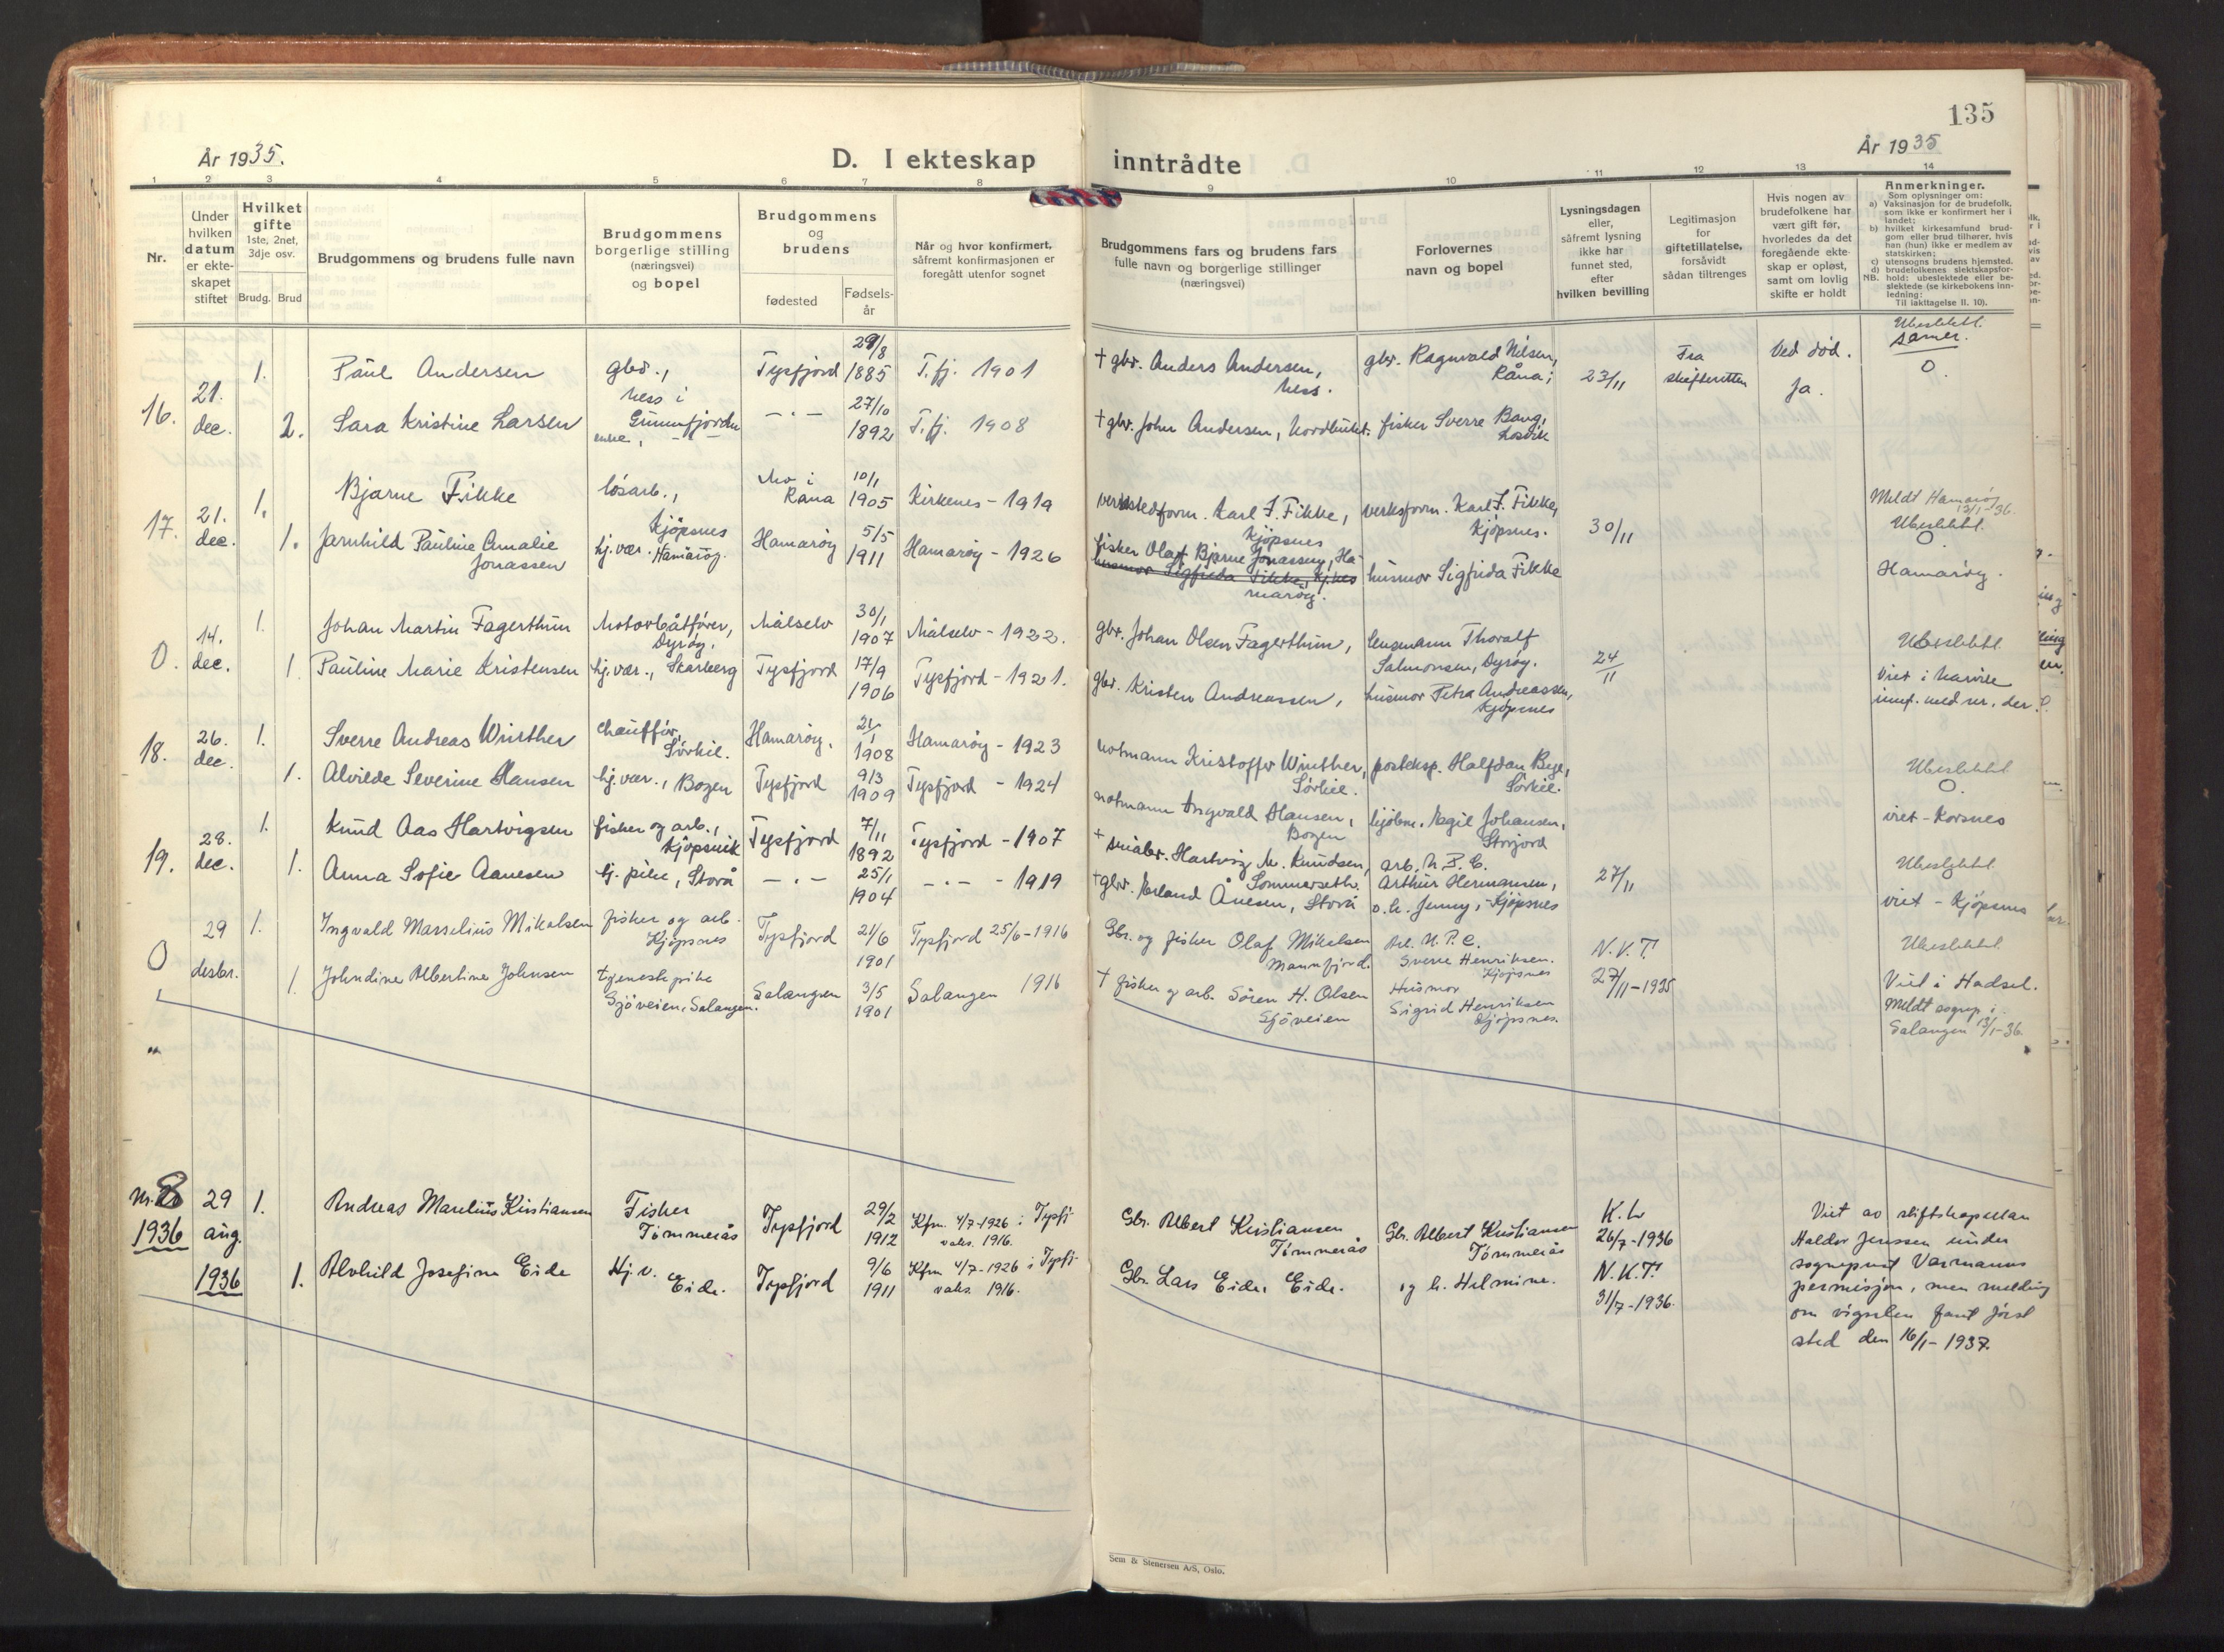 135
År 1935.
År 1935
D. I ekteskap inntrådte
1 2 3 4 5 6 7 8 9 10 11 12 13 14
Nr.
Under hvilken datum er ekteskapet stiftet
Hvilket gifte
1ste, 2net, 3dje osv.
Brudg. Brud
Brudgommens og brudens fulle navn
Brudgommens borgerlige stilling (næringsvei) og bopel
Brudgommens og brudens
fødested
Fødselsår
Når og hvor konfirmert, såfremt konfirmasjonen er foregått utenfor sognet
Brudgommens fars og brudens fars fulle navn og borgerlige stillinger (næringsvei)
Forlovernes navn og bopel
Lysningsdagen eller, såfremt lysning ikke har funnet sted, efter hvilken bevilling
Legitimasjon for giftetillatelse, forsåvidt sådan tiltrenges
Hvis nogen av brudefolkene har vært gift før, hvorledes da det foregående ekteskap er opløst, samt om lovlig skifte er holdt
Anmerkninger.
Som oplysninger om:
a) Vaksinasjon for de brudefolk, som ikke er konfirmert her i landet;
b) hvilket kirkesamfund brudgom eller brud tilhører, hvis han (hun) ikke er medlem av statskirken;
c) utensogns brudens hjemsted.
d) brudefolkenes slektskapsforhold: ubeslektede eller beslektede (se kirkebokens innledning:
NB. Til iakttagelse II. 10).
16. 21. dec.
1. Paul Andersen
gbr., Ness i Grunnfjorden
Tysfjord 29/8 1885
T.fj. 1901
† gbr. Anders Andersen, Ness.
gbr. Ragnvald Nilsen, Råna;
23/11
Fra skifteretten
Ved død. Ja.
Ubeslektet. samer. O.
2. Sara Kristine Larsen
enke, —
- " - 27/10 1892
T.fj. 1908
† gbr. John Andersen, Nordbukt.
fisker Sverre Bang,
17. 21. dec.
1. Bjarne Fikke
løsarb., Kjøpsnes
Mo i Rana 10/1 1905
Kirkenes - 1919
verkstedform. Karl J. Fikke, Kjøpsnes
verksform. Karl J. Fikke, Kjøpsnes.
30/11
Meldt Hamarøy 13/1-36.
Ubeslektet. O
1. Jarnhild Pauline Amalie Jonassen
hj. vær. Hamarøy.
Hamarøy 5/5 1911
Hamarøy - 1926
fisker Olaf Bjarne Jonassen, Hamarøy.
husmor Sigfrida Fikke, Kj.nes
husmor Sigfrida Fikke
Hamarøy.
O. 14. dec.
1. Johan Martin Fagerthun
Motorbåtfører, Dyrøy.
Målselv 30/1 1907
Målselv - 1922.
gbr. Johan Olsen Fagerthun,
lensmann Thoralf Salmonsen, Dyrøy.
24/11
Ubeslektet.
1. Pauline Marie Kristensen
hj. vær., Skarberg
Tysfjord 17/9 1906
Tysfjord - 1921.
gbr. Kristen Andreassen,
husmor Petra Andreassen, Kjøpsnes
Viet i Narvik
18. 26. dec.
1. Sverre Andreas Winther
chauffør, Sørkil.
Hamarøy. 21/1 1908
Hamarøy - 1923
notmann Kristoffer Winther, Sørkil.
posteksp. Halfdan Bye, Sørkil.
Ubeslektet. O.
1. Alvilde Severine Hansen
hj. vær., Bogen
Tysfjord 9/3 1909
Tysfjord - 1924
notmann Ingvald Hansen, Bogen
kjøbm. Magil Johansen, Storjord
viet - Korsnes
19. 28. dec.
1. Knud Aas Hartvigsen
fisker og arb., Kjøpsvik
Tysfjord 7/11 1892
Tysfjord - 1907
† småbr. Hartvig M. Knudsen, Sommerseth.
arb. N.P.C. Arthur Hermansen,
27/11
Ubeslektet
1. Anna Sofie Aanesen
tj. pike, Storå
- " - 25/1 1904
- " - - 1919
† gbr. Ånesen, Storå
o. h. Jenny, - Kjøpsnes
viet - Kjøpsnes
O 29 desbr.
1. Ingvald Marselius Mikalsen
fisker og arb. Kjøpsnes
Tysfjord 21/6 1901
Tysfjord 25/6-1916
Gbr. og fisker Olaf Mikalsen Mannfjord.
Arb. N.P.C. Sverre Henriksen. Kjøpsnes
N.K.T. 27/11-1935
Ubeslektet.
1. Johndine Albertine Johnsen
tjenestepike Sjøveien, Salangen.
Salangen 3/5 1901
Salangen 1916
† fisker og arb. Søren H. Olsen Sjøveien
Husmor Sigrid Henriksen Kjøpsnes.
Viet i Hadsel. Meldt sognep. i Salangen 13/1-36.
"
Nr. 8 1936 29 aug. 1936
1. Andreas Marelius Kristiansen
Fisker Tømmerås
Tysfjord 29/2 1912
Kfm. 4/7-1926 i Tysfj. vaks. 1916.
Gbr. Albert Kristiansen Tømmerås
Gbr. Albert Kristiansen Tømmerås
K.L. 26/7-1936
1. Alvhild Josefine Eide
Hj. v. Eide.
Tysfjord 9/6 1911
Kfm 4/7-1926 i Tysfj. vaks. 1916.
Gbr. Lars Eide, Eide.
og h. Helmine.
N.K.T. 31/7-1936.
Viet av stiftskapellan
Haldor Jenssen under
sogneprest Varmanns
permisjon, men melding
om vigselen fant først
sted den 16/1-1937.
Sem & Stenersen A/S, Oslo.